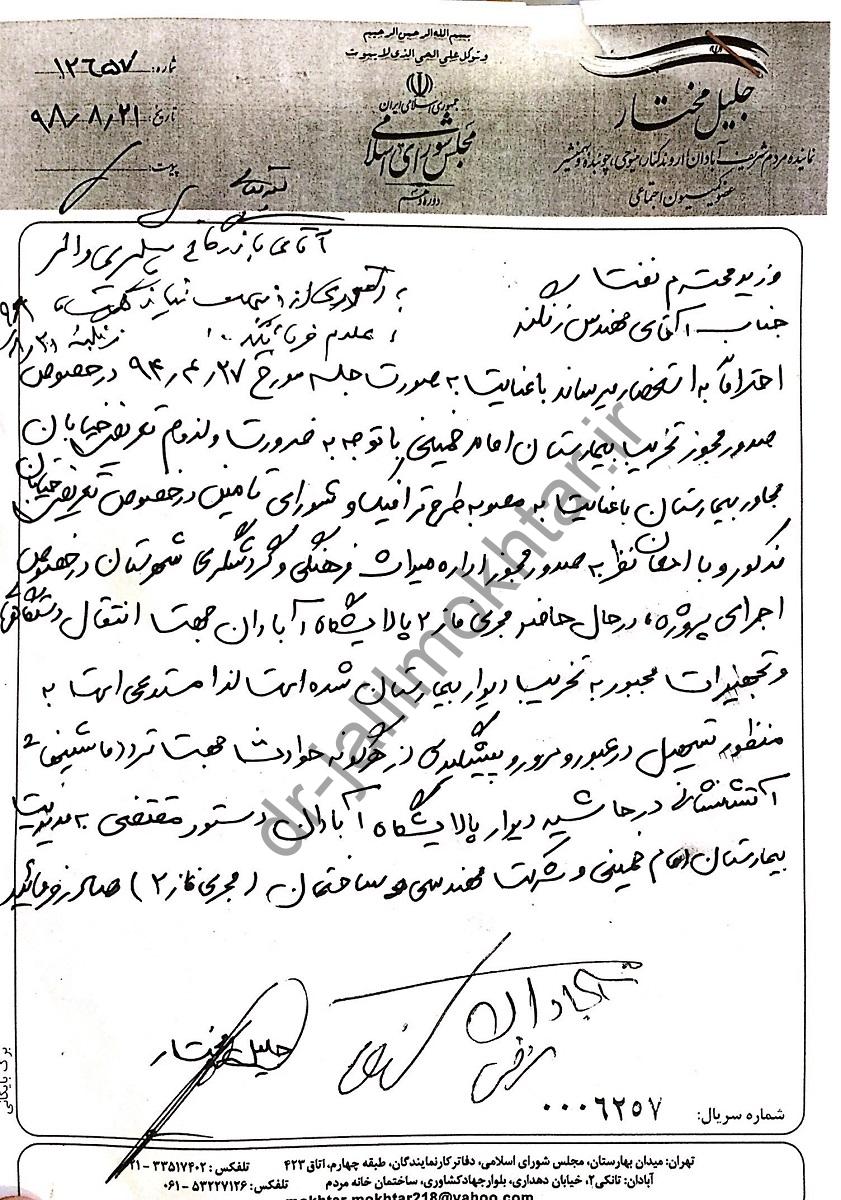 بسم الله الرحمن الرحیم
وتوکل علی الحی الذی لا یموت
جمهوری اسلامی ایران
مجلس شورای اسلامی
دوره دهم
جلیل مختار
نماینده مردم شریف آبادان، اروندکنار، مینوحی، چوئبده و بهمنشیر
عضو کمیسیون اجتماعی
شماره: ۱۲۶۵۷
تاریخ: ۹۸/۸/۲۱
پیوست:
وزیر محترم نفت
جناب آقای مهندس زنگنه
احتراماً به استحضار میرساند با عنایت به صورت جلسه مورخ ۹۴٫۴٫۲۷ در خصوص
صدور مجوز تخریب بیمارستان امام خمینی با توجه به ضرورت و لزوم تعریض خیابان
مجاور بیمارستان با عنایت به مصوبه طرح ترافیک و شورای تامین در خصوص تعریض خیابان
مذکور و با امعان نظر به صدور مجوز اداره میراث فرهنگی و گردشگری شهرستان در خصوص
اجرای پروژه، در حال حاضر مجری فاز ۲ پالایشگاه آبادان جهت انتقال دستگاهها
و تجهیزات مجبور به تخریب دیوار بیمارستان شده است لذا مستدعی است به
منظور تسهیل در عبور و مرور و پیشگیری از هرگونه حوادث جهت تردد ماشینهای
آتشنشانی در حاشیه دیوار پالایشگاه آبادان دستور مقتضی به مدیریت
بیمارستان امام خمینی و شرکت مهندسی و ساختمان (مجری فاز ۲) صادر فرمائید
جلیل مختار
شماره سریال: ۰۰۰۶۲۵۷
تهران: میدان بهارستان، مجلس شورای اسلامی، دفاتر کار نمایندگان، طبقه چهارم، اتاق ۴۲۳
تلفکس: ۳۳۵۱۷۴۰۲ - ۰۲۱
آبادان: تانکی۲، خیابان دهداری، بلوار جهاد کشاورزی، ساختمان خانه مردم
تلفکس: ۵۳۲۲۷۱۲۶ - ۰۶۱
mokhtar.mokhtar218@yahoo.com
برگ بایگانی
dr-jalilmokhtar.ir